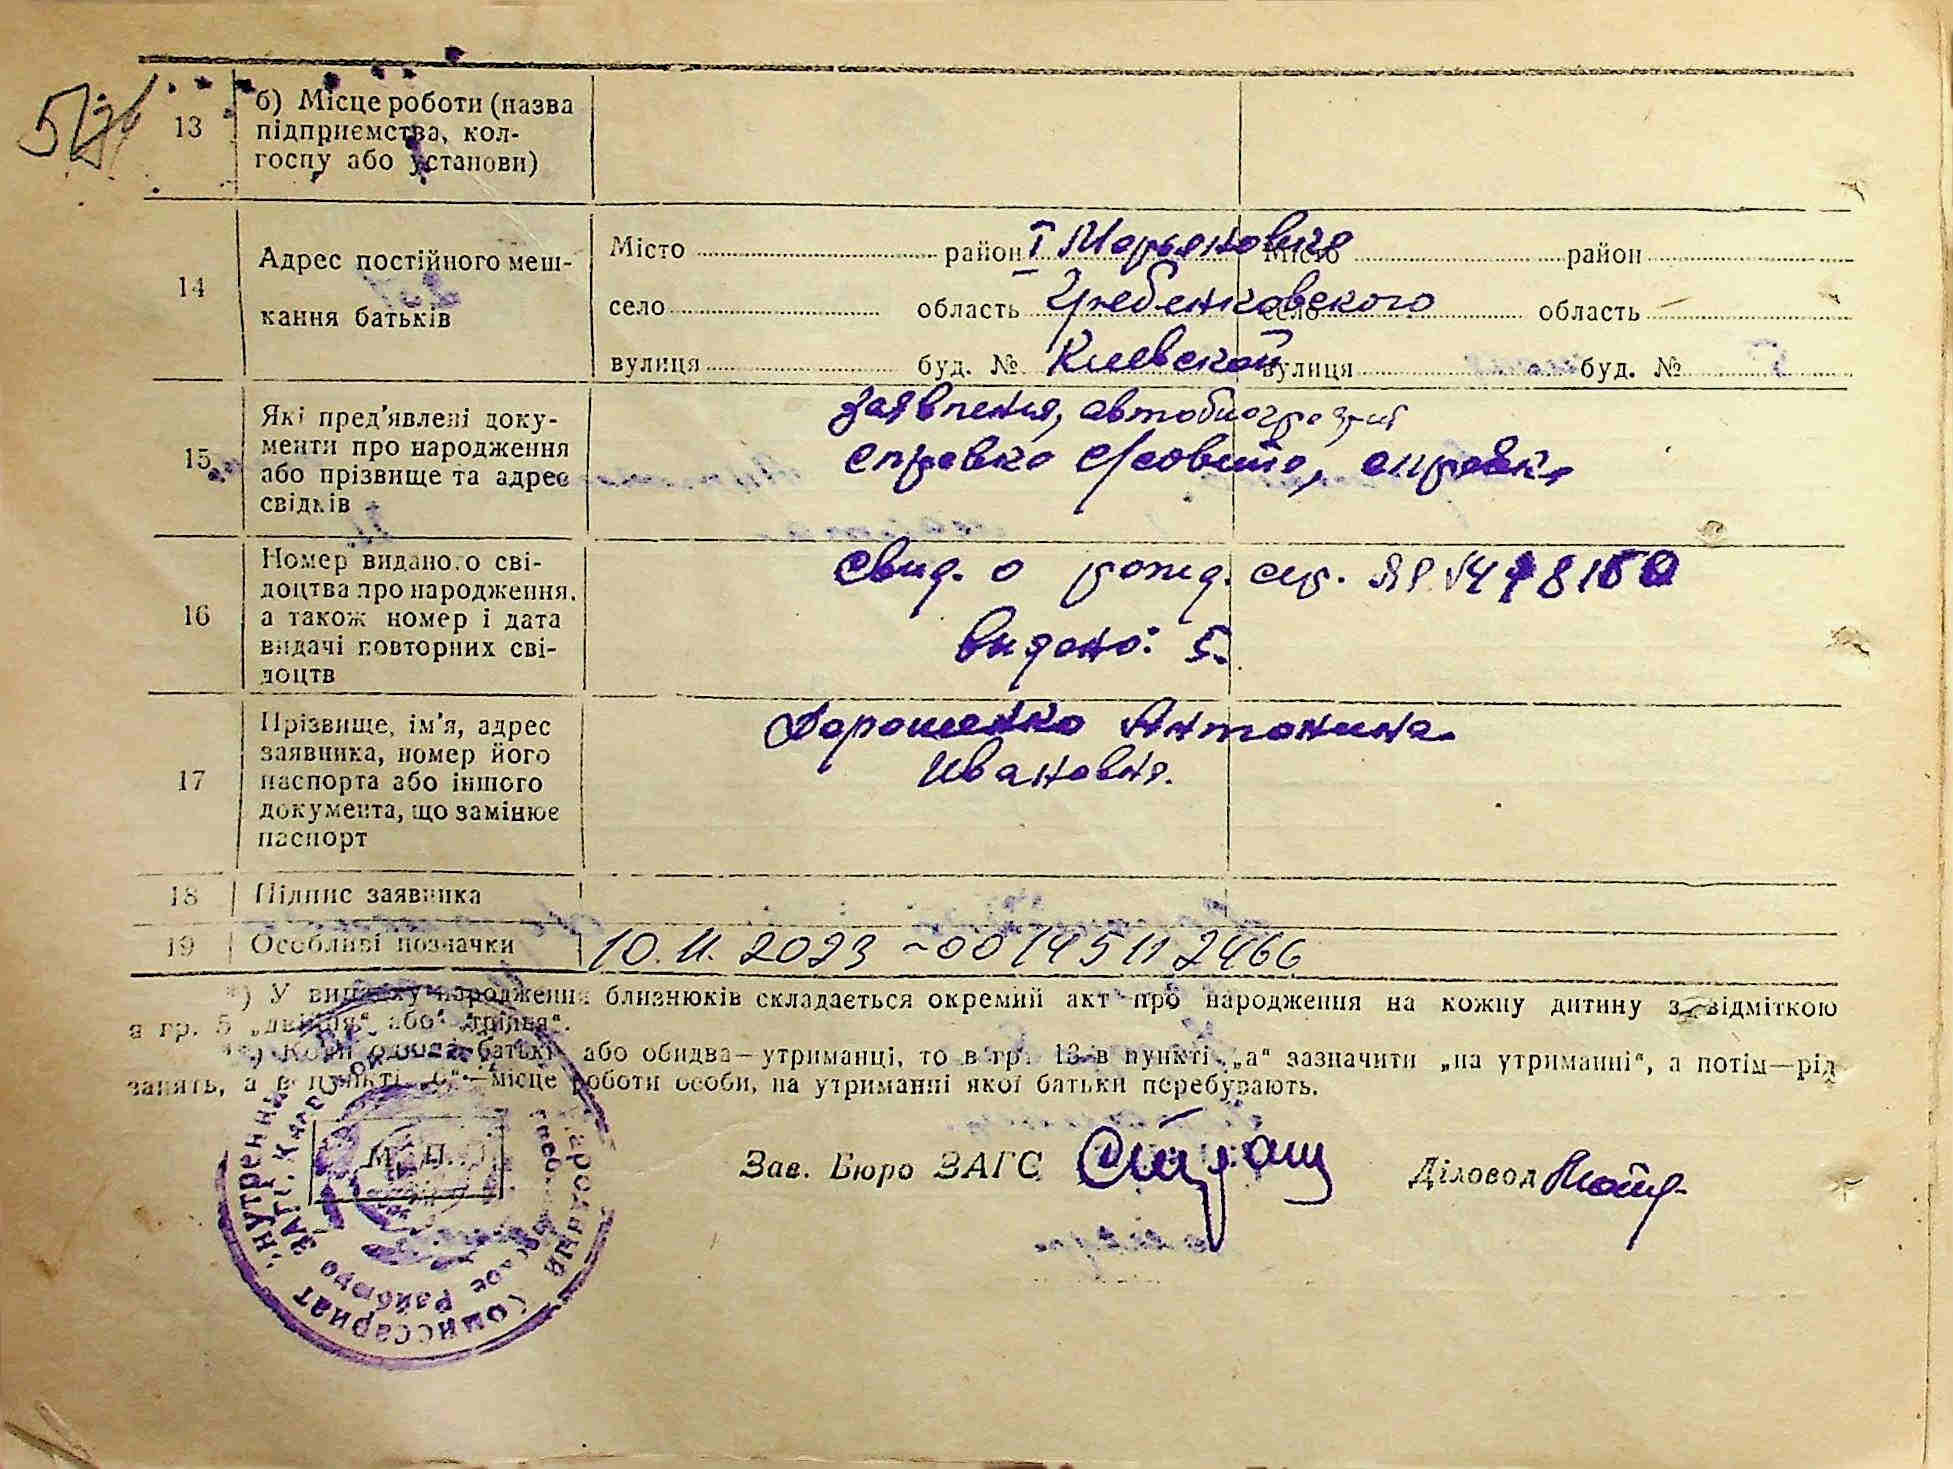 13
б) Місце роботи (назва
підприємства, кол-
госпу або установи)
14
Адрес постійного меш-
кання батьків
Місто район І Марьяновка Місто район
село область Гребенковского село область
вулиця буд. № Киевской вулиця буд. №
15
Які пред'явлені доку-
менти про народження
або прізвище та адрес
свідків
заявления, автобиография
справка справка
16
Номер виданого сві-
доцтва про народження,
а також номер і дата
видачі повторних сві-
доцтв
свид. о рожд. сер.
видано: 5.
17
Прізвище, ім'я, адрес
заявника, номер його
паспорта або іншого
документа, що замінює
паспорт
Дорошенко Антонина
Ивановна.
18 Підпис заявника
19 Особливі позначки 10.11.2023 ~00145112466
*) У випадку народження близнюків складається окремий акт про народження на кожну дитину з відміткою
в гр. 5 „двійня“ або „трійня“.
**) Коли один з батьків або обидва—утриманці, то в гр. 13 в пункті „а“ зазначити „на утриманні“, а потім—рід
занять, а в пункті „б“—місце роботи особи, на утриманні якої батьки перебувають.
М. П.
Зав. Бюро ЗАГС
Діловод
Народный Комиссариат Внутренних
Райбюро ЗАГС